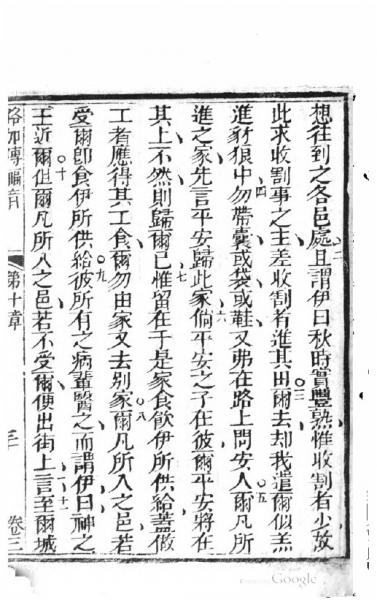 想往到之各邑處且謂伊曰秋時實豐熟惟收割者少故
二
此求收割事之主差收割者進其田爾去却我遣爾似羔
三
進豺狼中勿帶囊或袋或鞋又弗在路上問安人爾凡所
四
五
進之家先言平安歸此家倘平安之子在彼爾平安將在
六
其上不然則歸爾已惟留在于是家食飲伊所供給蓋做
七
工者應得其工食爾勿由家又去别家爾凡所入之邑若
八
受爾卽食伊所供給彼所有之病輩醫之而謂伊曰神之
九
王近爾但爾凡所入之邑若不受爾便出街上言至爾城
十
十一
路加傳福音
第十章
卷三
Google